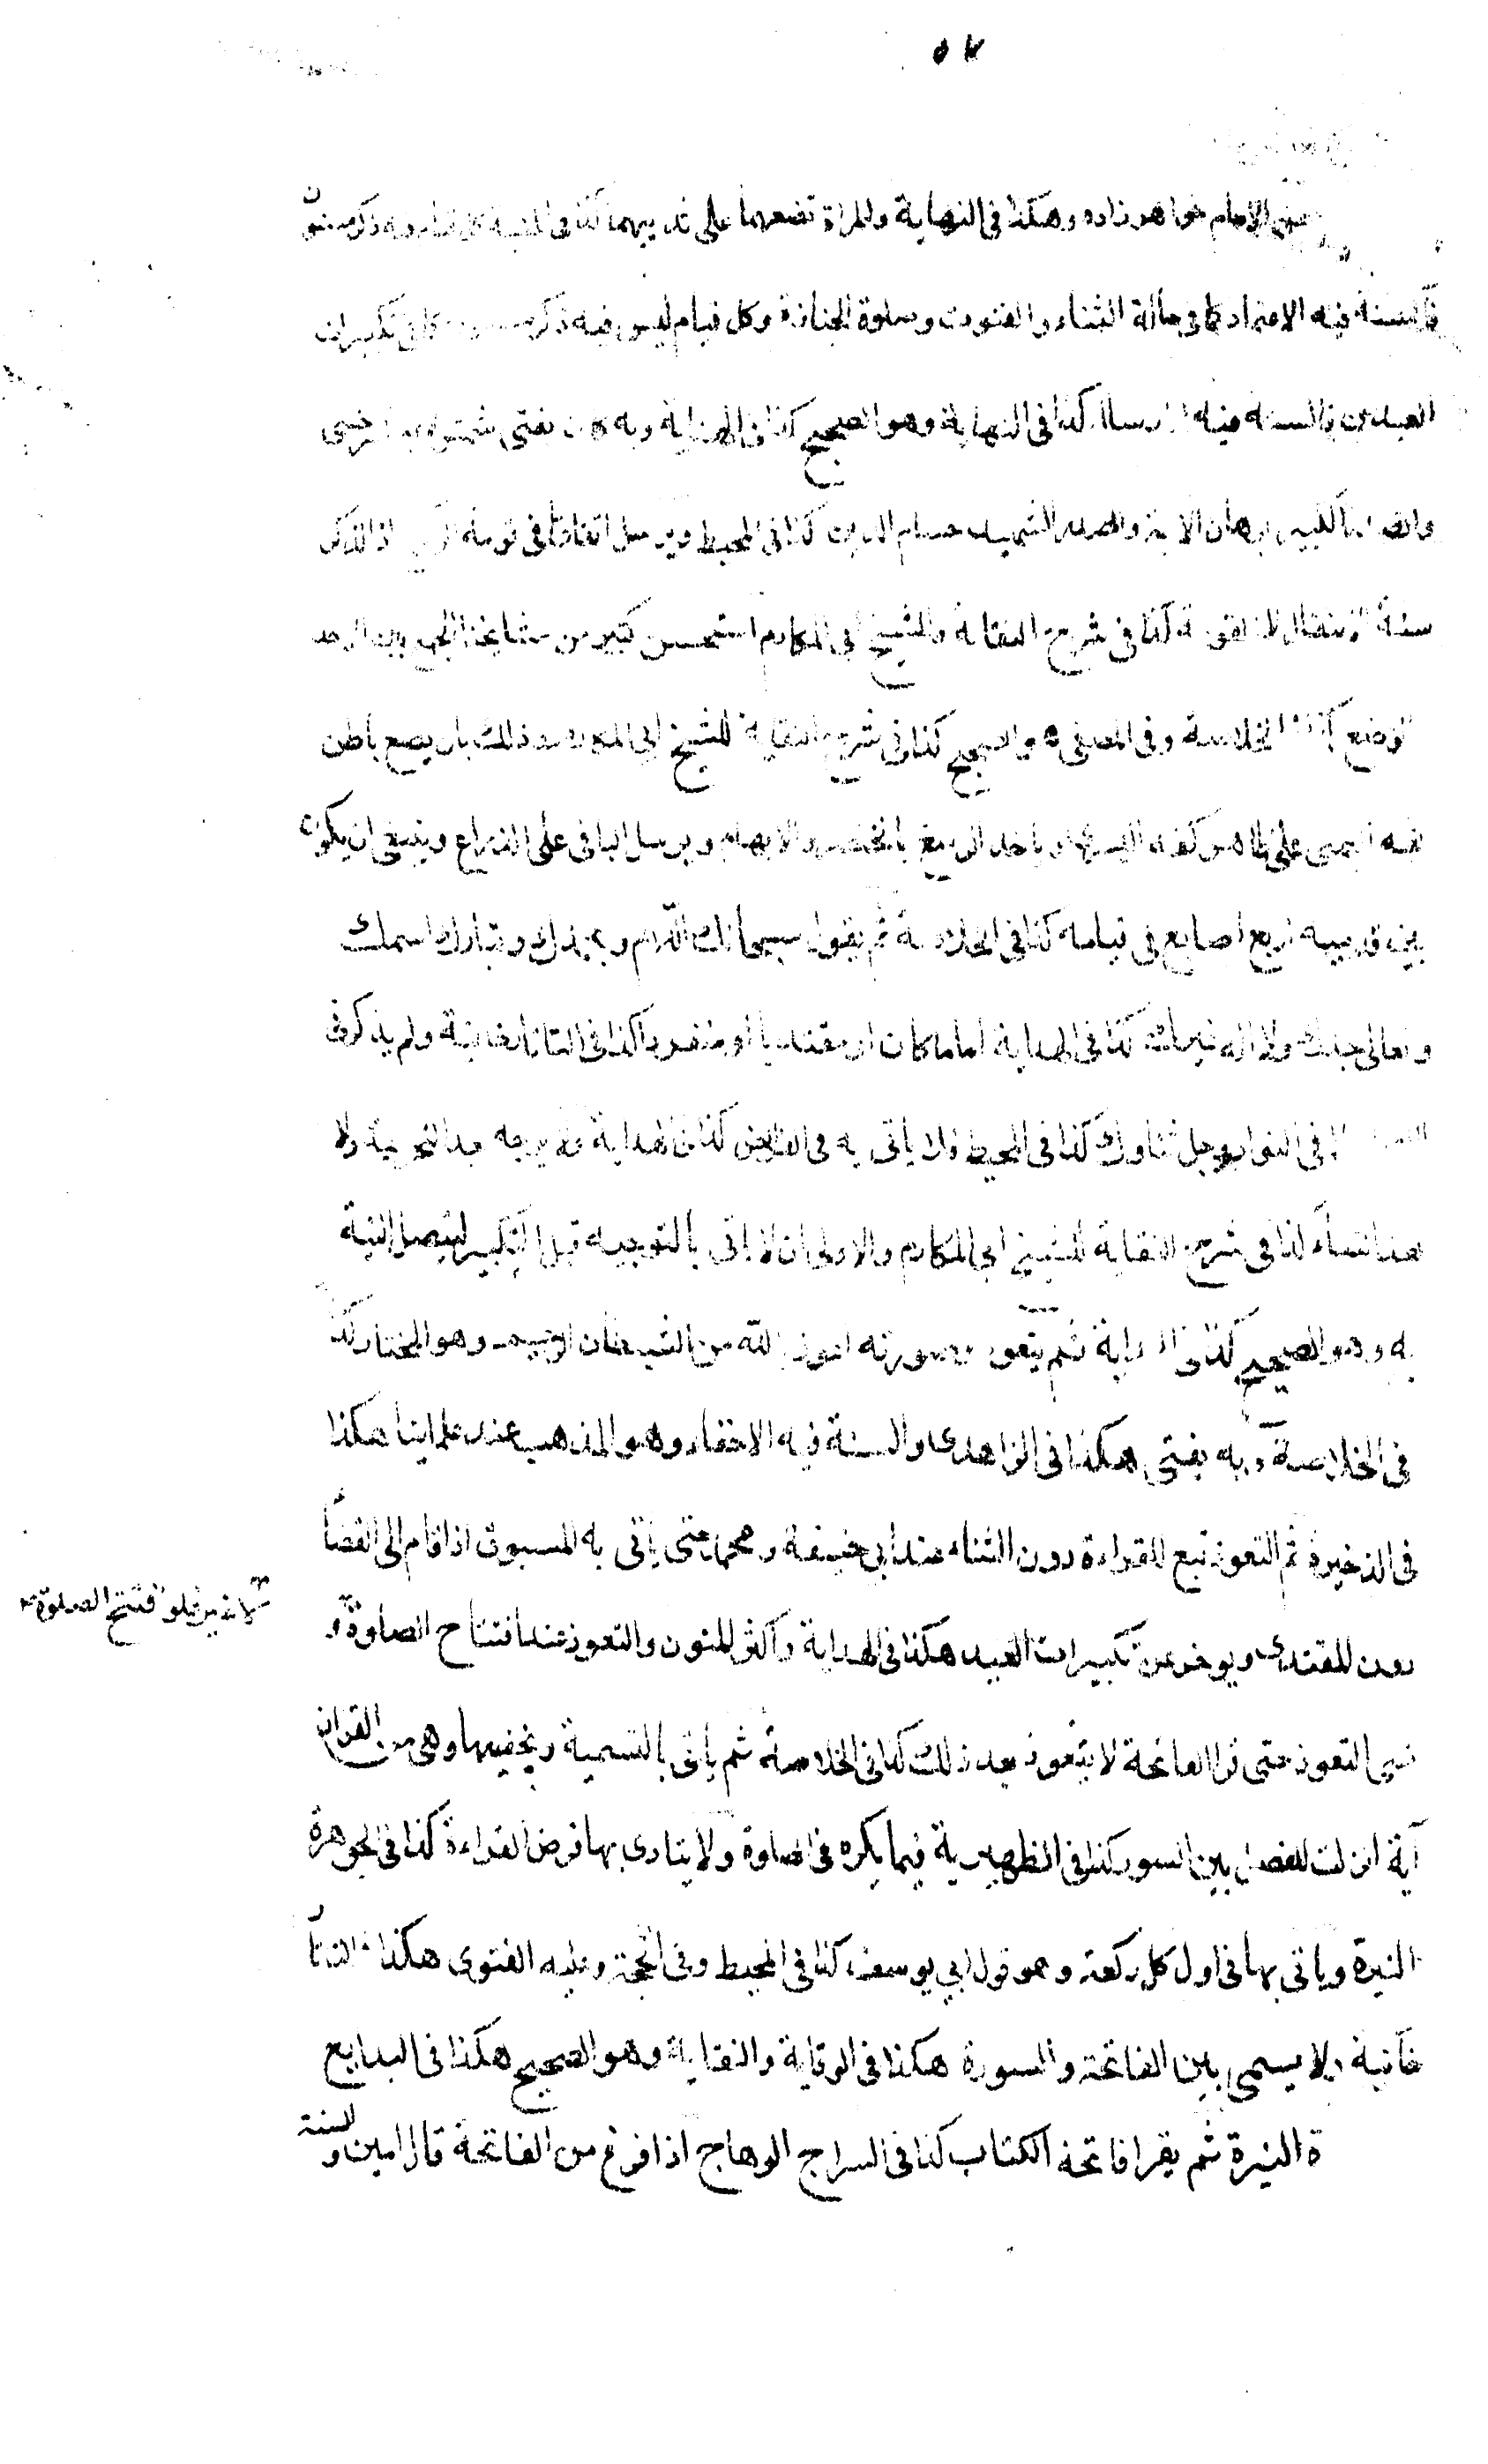 ٥٧
الامام خواهر زاده وهكذا فى النهاية والمراة تضعهما على ثدييهما كذا فى المنية كل قيام فيه ذكر مسنون
فالسنة فيه الاعتماد كما فى حالة الثناء والقنوت وصلوة الجنازة وكل قيام ليس فيه ذكر كما فى تكبيرات
العيدين فالسنة فيه الارسال كذا فى النهاية وهو الصحيح كذا فى الهداية وبه كان يفتى شمس السرخسى
والصدر الكبير برهان الايمة والصدر الشهيد حسام الدين كذا فى المحيط ويرسل اتفاقا فى قومة اذ الذكر
سنة الانتقال لا القومة كذا فى شرح النقاية للشيخ ابى المكارم استحسن كثير من مشايخنا الجمع بين الاخذ
الوضع كذا الخلاصة وفى المصفى هو الصحيح كذا فى شرح النقاية للشيخ ابى المكارم وذلك بان يضع باطن
كفه اليمنى على ظاهر كفه اليسرى وياخذ الرسغ بالخنصر والابهام ويرسل الباقى على الذراع وينبغى ان يكون
بين قدميه اربع اصابع فى قيامه كذا فى الخلاصة ثم يقول سبحانك اللهم وبحمدك وتبارك اسمك
وتعالى جدك ولا اله غيرك كذا فى الهداية اماما كان او مقتديا او منفردا كذا فى التاتارخانية ولم يذكر فى
فى النوادر وجل ثناوك كذا فى المحيط فلا ياتى به فى الفرايض كذا فى الهداية ولا يوجه بعد التحريمة ولا
بعد الثناء كذا فى شرح النقاية للشيخ ابى المكارم والاولى ان لا ياتى بالتوجيه قبل التكبير لتتصل النية
به وهو الصحيح كذا فى الهداية ثم يتعوذ وصورته اعوذ بالله من الشيطان الرجيم وهو المختار كذا
فى الخلاصة وبه يفتى هكذا فى الزاهدى والسنة فيه الاخفاء وهو المذهب عند علماينا هكذا
فى الذخيرة ثم التعوذ تبع للقراءة دون الثناء عند ابى حنيفة ومحمد حتى ياتى به المسبوق اذا قام الى القضا
دون المقتدى ويوخر عن تكبيرات العيد هكذا فى الهداية واكثر المتون والتعوذ عند افتتاح الصلوة و
لا غير فلو افتتح الصلوة
نسى التعوذ حتى قرا الفاتحة لا يتعوذ بعد ذلك كذا فى الخلاصة ثم ياتى بالتسمية ويخفيها وهى من القران
آية انزلت للفصل بين السور كذا فى الظهيرية فيما يكره فى الصلوة ولا يتادى بها فرض القراءة كذا فى الجوهرة
النيرة وياتى بها فى اول كل ركعة وهو قول ابى يوسف كذا فى المحيط وفى الحجة وعليه الفتوى هكذا فى التاتار
خانية ولا يسمى بين الفاتحة والسورة هكذا فى الوقاية والنقاية وهو الصحيح هكذا فى البدايع
ة النيرة ثم يقرا فاتحة الكتاب كذا فى السراج الوهاج اذا فرغ من الفاتحة قال امين والسنة